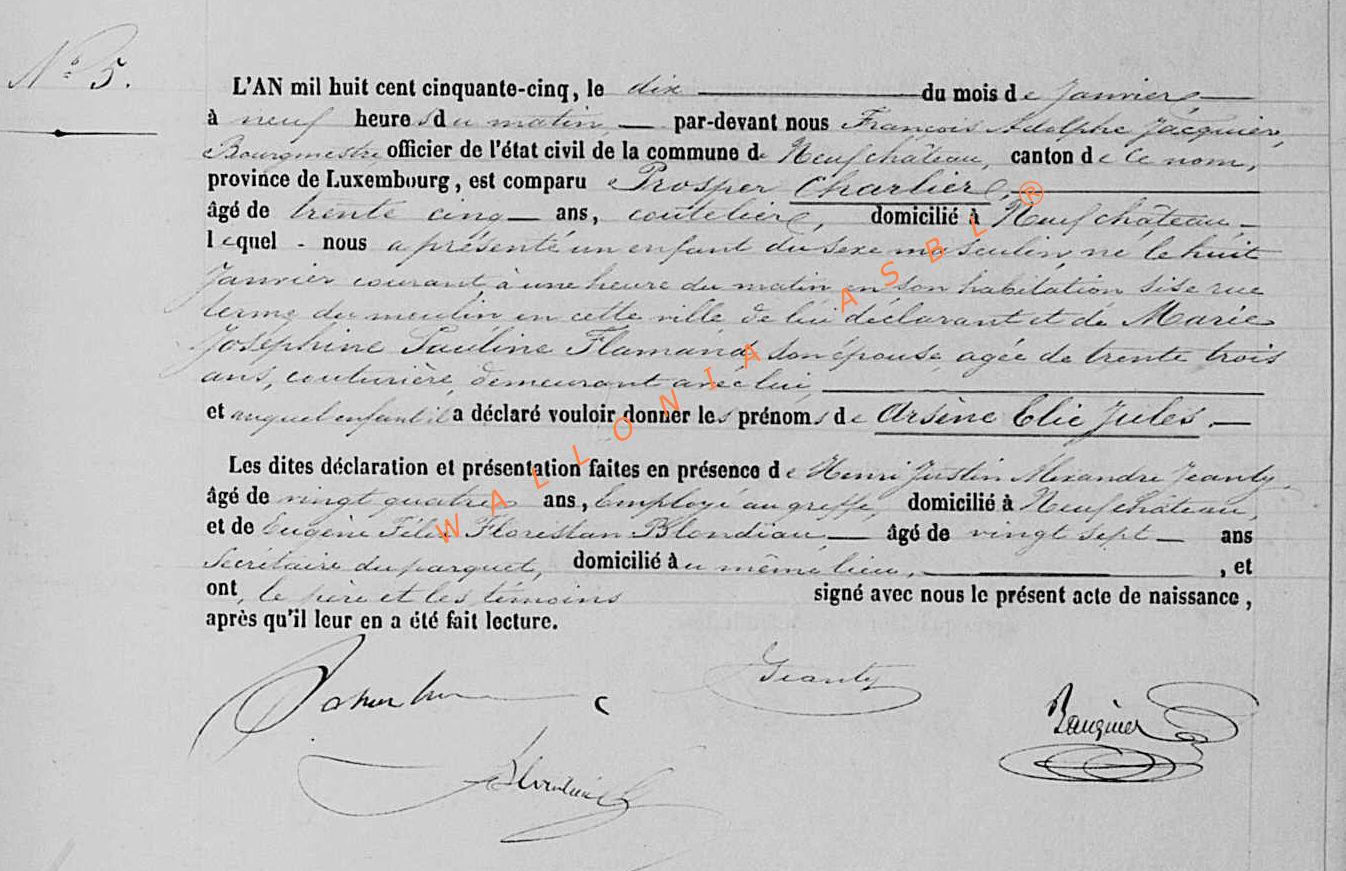 N° 5.
L'AN mil huit cent cinquante-cinq, le dix du mois de Janvier,
à neuf heures du matin, par-devant nous François Adolphe Jacquier,
Bourgmestre officier de l'état civil de la commune de Neufchâteau, canton de ce nom,
province de Luxembourg, est comparu Prosper Charlier,
âgé de trente cinq ans, coutelier, domicilié à Neufchâteau
lequel nous a présenté un enfant du sexe masculin, né le huit
Janvier courant à une heure du matin en son habitation sise rue
terme du moulin en cette ville de lui déclarant et de Marie
Joséphine Pauline Flamand son épouse, agée de trente trois
ans, couturière, demeurant avec lui,
et auquel enfant il a déclaré vouloir donner les prénoms de Arsène Elie Jules.
Les dites déclaration et présentation faites en présence de Henri Justin Alexandre Jeanty,
âgé de vingt quatre ans, Employé au greffe, domicilié à Neufchâteau,
et de Eugène Félix Floristan Blondiau âgé de vingt sept ans
Secrétaire du parquet, domicilié au même lieu, , et
ont, le père et les témoins signé avec nous le présent acte de naissance,
après qu'il leur en a été fait lecture.
Jeanty
WALLONIA ASBL ®